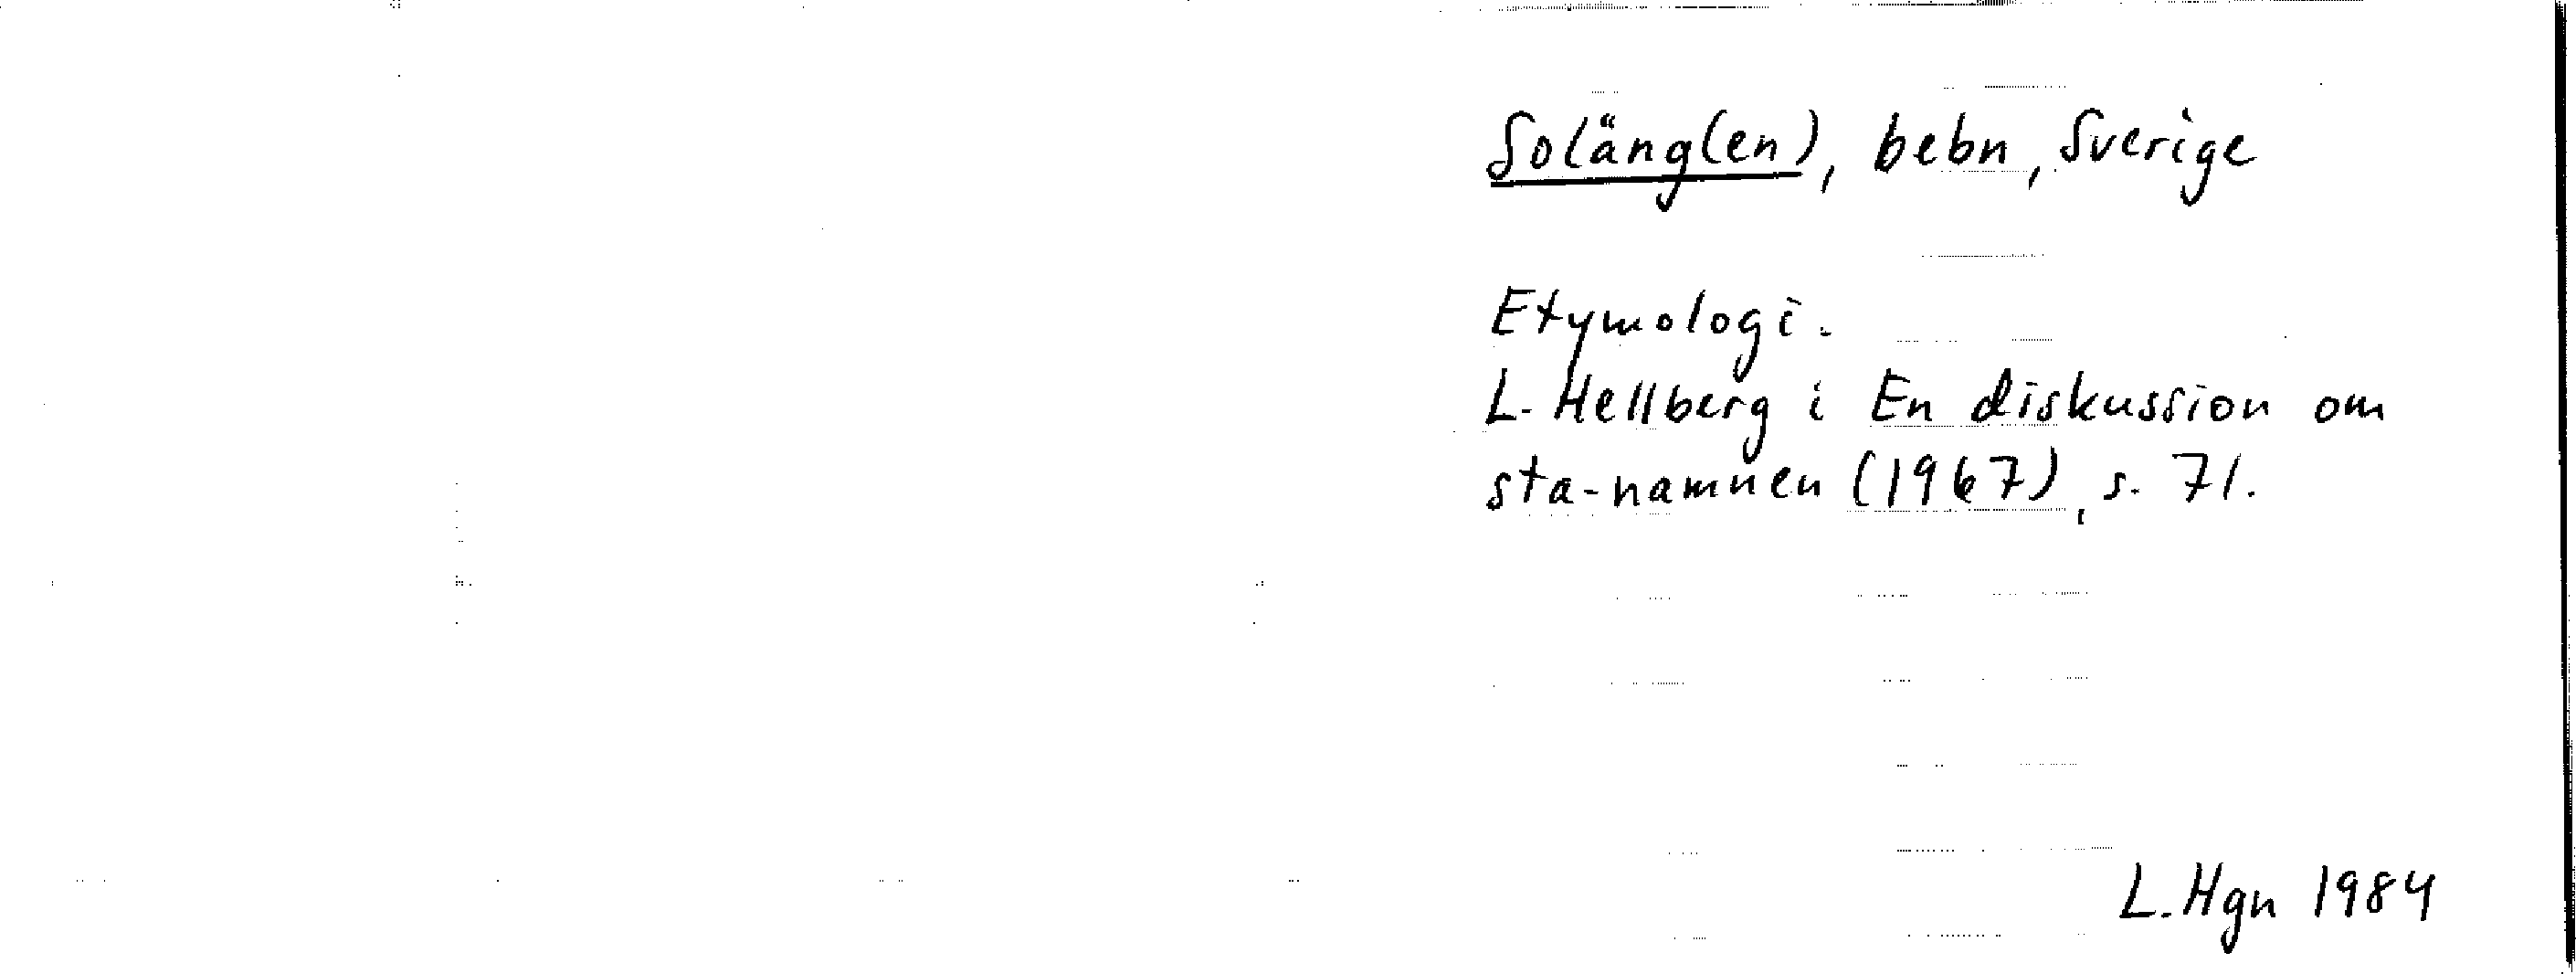 Soläng(en), bebn, Sverige
Etymologi.
L. Hellberg i En diskussion om
sta-namnen (1967), s. 71.
L. Hgn 1984